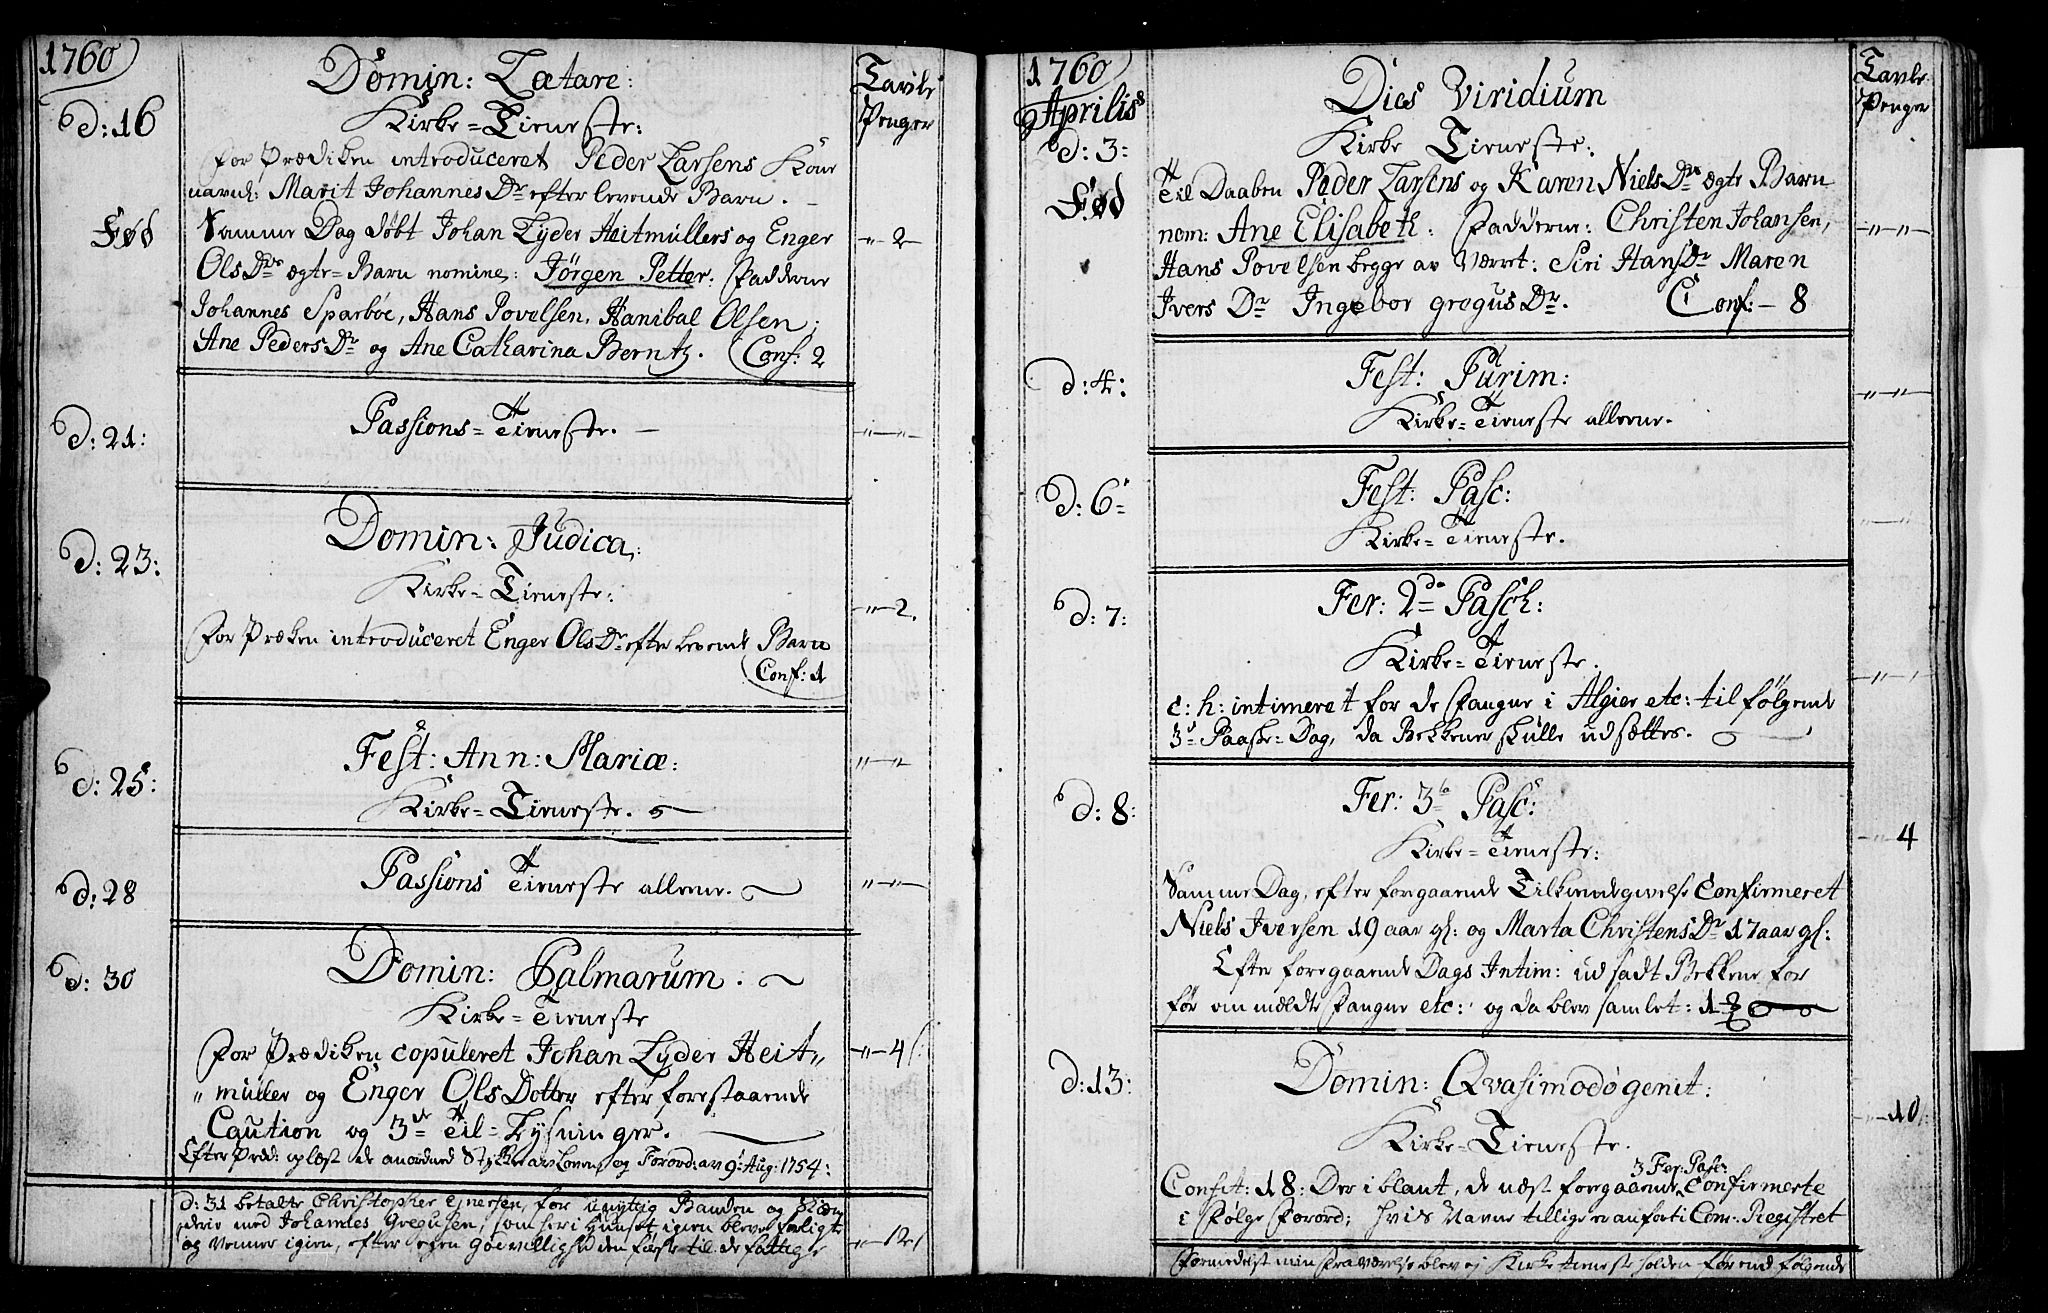 1760
Domin: Lætare:
Tavle
Penger
D: 16
Kirke=Tieneste:
for Prædiken introduceret Peder Larsens Kone
navnl: Marit Johannes Dr efter levende Barn. -
Fød
Samme Dag døbt Johan Lyder Heitmüllers og Enger
"-2
Ols Drs ægte=Barn nomine: Jørgen Petter: Fadderne
Johannes Sparboe, Hans Povelsen, Hanibal Olsen;
Ane Peders Dr og Ane Catharina Berntz. Conf: 2
D: 21:
Passions=Tieneste. -
"-"-
D: 23:
Domin: Judica:
Kirke=Tieneste:
"-2.
For Præken introduceret Enger Ols Dr efter levende Barn
Conf: 1
D: 25:
Fest: Ann: Mariæ:
"-"
Kirke=Tieneste.
D: 28
Passions Tieneste allene.
"-"-
D: 30
Domin: Palmarum.
Kirke=Tieneste
For Prædiken copuleret Johan Lyder Heit"
"-4
" müller og Enger Ols Dotter efter forestaaende
Caution og 3de Til=Lysninger.
Efter Præd: oplæst de anordned Stykker av Loven, og Forord: av 9: Aug: 1754:
d: 31 betalte Christopher Einersen, for unyttig Banden og Skien
derie med Johannes Gregusen, som her i Huuset igien bleve forligt
og Venner igien, efter egen Godvillighed den første til de fattige
1760
Aprilis
Dies Viridium
Tavle
Penger
D: 3:
Kirke Tieneste:
Fød
Til Daaben Peder Larsens og Karen Niels Drs ægte Barn
nom: Ane Elisabeth: Fadderne: Christen Johansen,
"-"-
Hans Povelsen begge av Værret: Siri Hans Dr Maren
Ivers Dr Ingebor gregus Dr. Conf: - 8
D: 4:
Fest: Purim:
"-"-
Kirke=Tieneste allene.
D: 6:
Fest: Pasc:
"-"
Kirke=Tieneste.
D: 7:
Fer: 2da Pasch:
Kirke=Tieneste.
"-"-
e: h: intimeret for de Fangne i Algier etc: til følgende
3de Paaske=Dag, da Bekkener skulle udsættes.
D: 8:
Fer: 3tia Pasc:
Kirke=Tieneste:
"-4
Samme Dag, efter forgaaende Tilkiendegivelse Confirmeret
Niels Iversen 19 aar gl: og Marta Christens Dr 17 aar gl:
Efter foregaaende Dags Intim: udsadt Bekkene for
før ommældte Fangne etc: og da blev samlet: 1
D: 13:
Domin: Qvasimodogenit:
-"-10
Kirke=Tieneste.
3 Fer: Pasc:
Consit: 18: Der i blant, de næst forgaaende Confirmerte
i Følge Forord; hvis Navne tillige er anført i Com: Registret
Formedelst min Fraværelse blev ej Kirke tieneste holden før end følgende